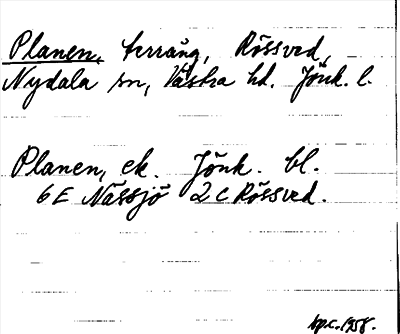 Planen, terräng, Rössved,
Nydala sn, Västra hd. Jönk. l.
Planen, ek. Jönk. bl.
6E Nässjö 2c Rössved.
1958.